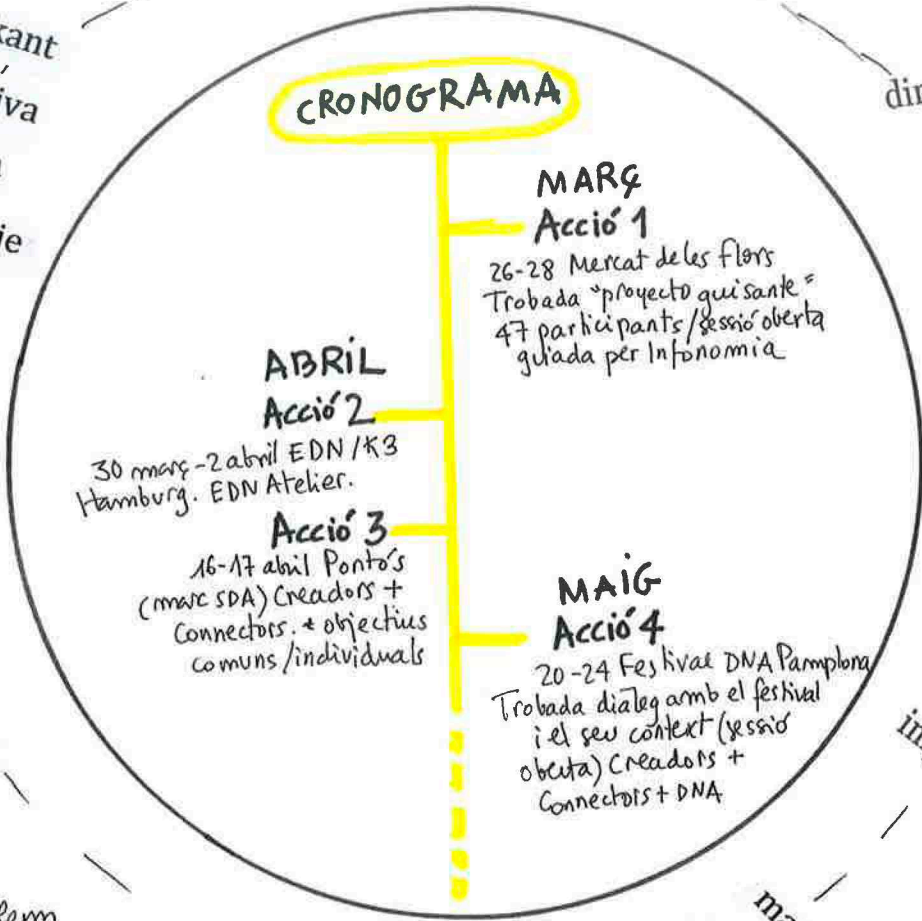 CRONOGRAMA
MARÇ
Acció 1
26-28 Mercat de les flors
Trobada "proyecto guisante"
47 participants/sessió oberta
guiada per Infonomia
ABRIL
Acció 2
30 març-2 abril EDN/K3
Hamburg. EDN Atelier.
Acció 3
16-17 abril Pontós
(marc SDA) Creadors +
Connectors. + objectius
comuns/individuals
MAIG
Acció 4
20-24 Festival DNA Pamplona
Trobada diàleg amb el festival
i el seu context (sessió
oberta) Creadors +
Connectors + DNA